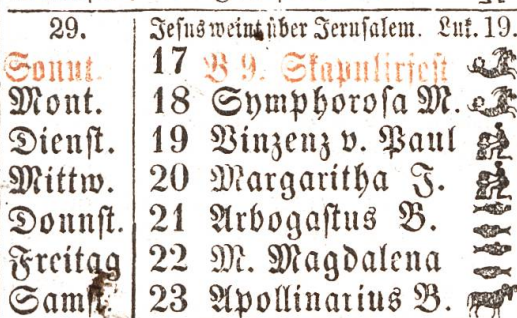 29. Jesus weint über Jerusalem. Luk. 19.
Sonnt. 17 B 9. Skapulirfest
Mont. 18 Symphorosa M.
Dienst. 19 Vinzenz v. Paul
Mittw. 20 Margaritha J.
Donnst. 21 Arbogastus B.
Freitag 22 M. Magdalena
Samst. 23 Apollinarius B.